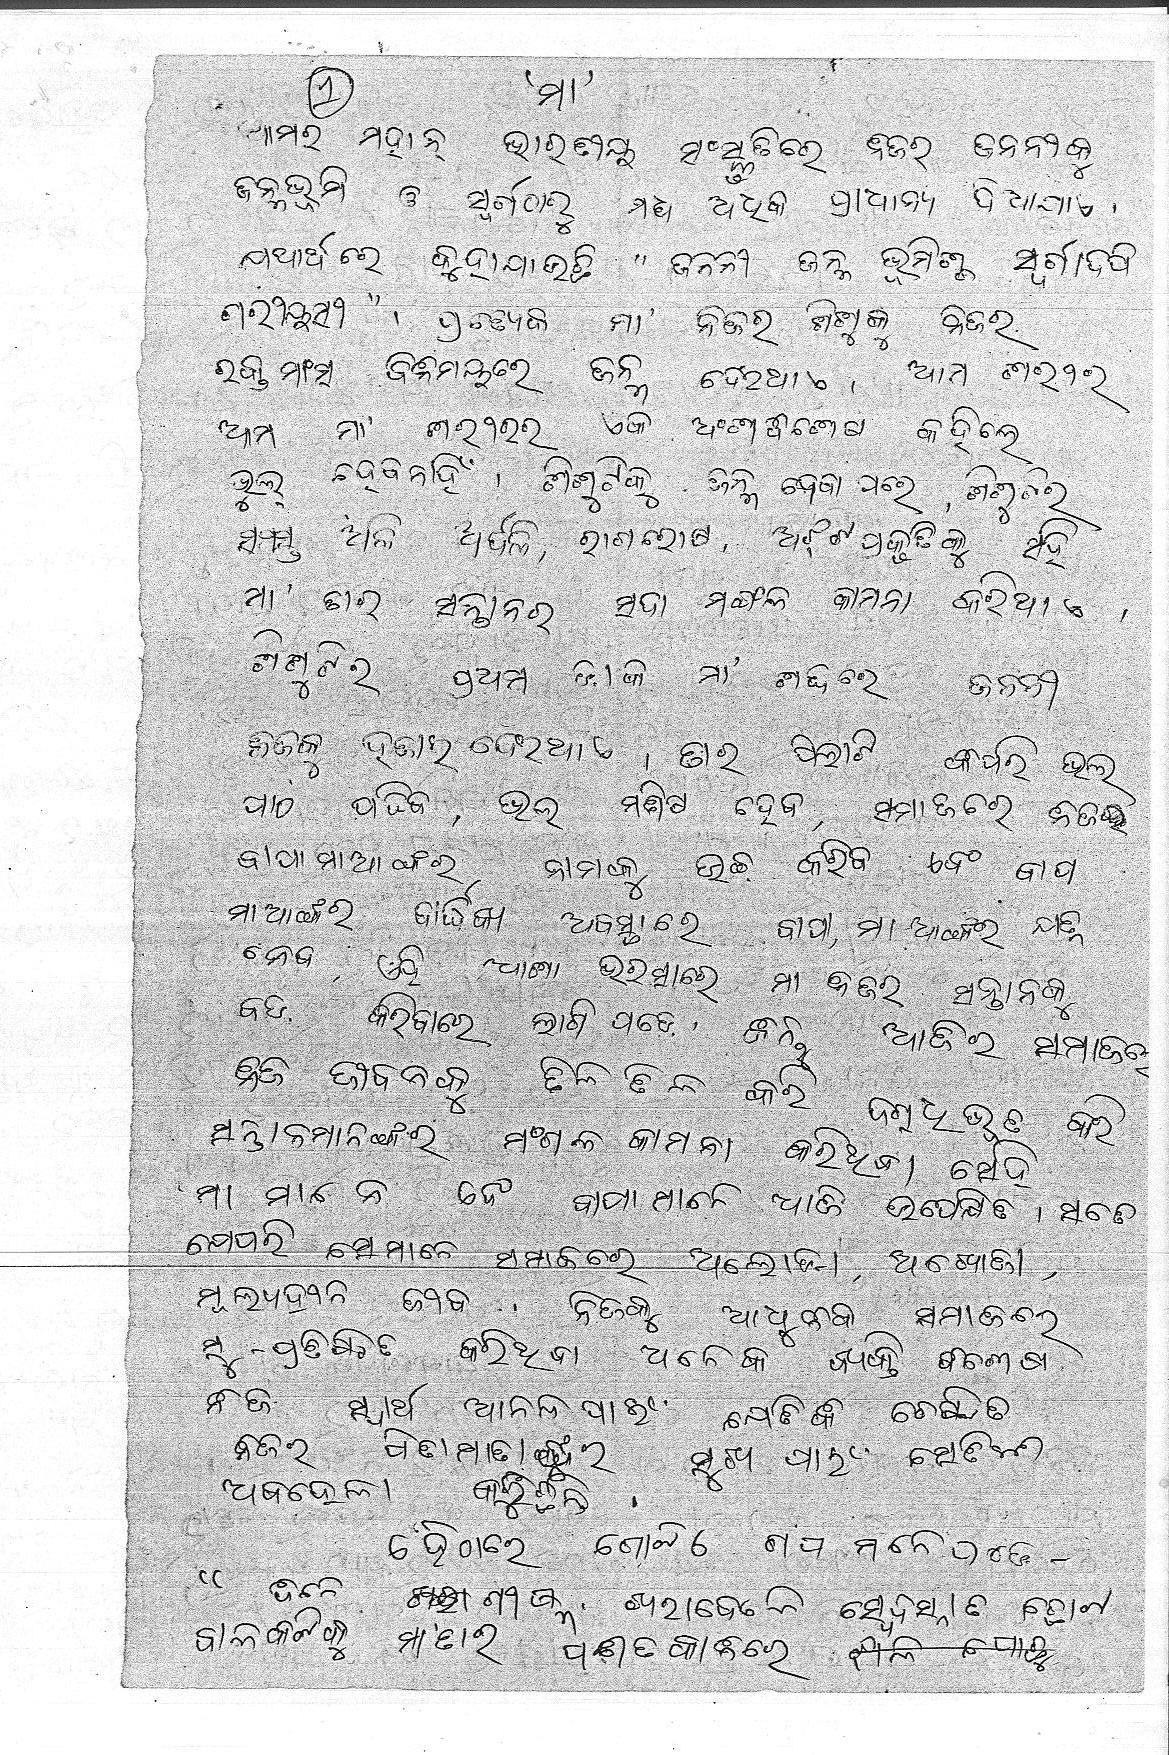 ୧ 'ମା'
ଆମର ମହାନ୍ ଭାରତୀୟ ସଂସ୍କୃତିରେ ନିଜର ଜନନୀକୁ
ଜନ୍ମଭୂମି ଓ ସ୍ୱର୍ଗଠାରୁ ମଧ୍ୟ ଅଧିକ ପ୍ରାଧାନ୍ୟ ଦିଆଯାଏ ।
ଯଥାର୍ଥରେ କୁହାଯାଇଛି " ଜନନୀ ଜନ୍ମ ଭୂମିଶ୍ଚ ସ୍ୱର୍ଗାଦପି
ଗରୀୟସୀ" । ପ୍ରତ୍ୟେକ ମା' ନିଜର ଶିଶୁକୁ ନିଜର
ରକ୍ତ ମାଂସ ବିନିମୟରେ ଜନ୍ମ ଦେଇଥାଏ । ଆମ ଶରୀର
ଆମ ମା' ଶରୀରର ଏକ ଅଂଶବିଶେଷ କହିଲେ
ଭୁଲ୍ ହେବନାହିଁ । ଶିଶୁଟିକୁ ଜନ୍ମ ଦେବା ପରେ, ଶିଶୁଟିର
ସମସ୍ତ ଅଳି ଅର୍ଦଳି, ରାଗରୋଷ, ଅଝଟପ୍ରକୃତିକୁ ସହି
ମା' ତାର ସନ୍ତାନର ସଦା ମଙ୍ଗଳ କାମନା କରିଥାଏ ।
ଶିଶୁଟିର ପ୍ରଥମ ଡାକ ମା' ଶବ୍ଦରେ ଜନନୀ
ନିଜକୁ ହଜାଇ ଦେଇଥାଏ । ତାର ପିଲାଟି କିପରି ଭଲ
ପାଠ ପଢିବ, ଭଲ ମଣିଷ ହେବ, ସମାଜରେ ନିଜ
ବାପାମାଆଙ୍କର ନାମକୁ ଉଚ୍ଚ କରିବ ଏବଂ ବାପା
ମାଆଙ୍କର ବାର୍ଦ୍ଧକ୍ୟ ଅବସ୍ଥାରେ ବାପା, ମାଆଙ୍କର ଯତ୍ନ
ନେବ, ଏହି ଆଶା ଭରସାରେ ମା ନିଜର ସନ୍ତାନକୁ
ବଡ କରିବାରେ ଲାଗି ପଡେ । କିନ୍ତୁ ଆଜିର ସମାଜରେ
ନିଜ ଜୀବନକୁ ତିଳ ତିଳ କରି ଦଗ୍ଧିଭୂତ କରି
ସନ୍ତାନମାନଙ୍କର ମଂଗଳ କାମନା କରିଥିବା ସେହି
ମା ମାନେ ଏବଂ ବାପାମାନେ ଆଜି ଉପେକ୍ଷିତ । ସତେ
ଯେପରି ସେମାନେ ସମାଜରେ ଅଲୋଡା, ଅଖୋଜା,
ମୂଲ୍ୟହୀନ ଜୀବ । ନିଜକୁ ଆଧୁନିକ ସମାଜରେ
ସୁ-ପ୍ରତିଷ୍ଠିତ କରିଥିବା ଅନେକ ବ୍ୟକ୍ତି ବିଶେଷ
ନିଜ ସ୍ୱାର୍ଥ ଆନନ୍ଦ ପାଇଁ ଯେତିକି ଚେଷ୍ଟିତ
ନିଜର ପିତାମାତାଙ୍କର ସୁଖ ପାଇଁ ସେତିକି
ଅବହେଳା କରୁଛନ୍ତି ।
ଏହିଠାରେ ଗୋଟିଏ ଗପ ମନେ ପଡେ -
" ଜଣେ ଗ୍ରୀଷ୍ମ ଖରାବେଳେ ସ୍ୱେଦସ୍ନାତ ହୋଇ
ବାଳକଟିକୁ ମା'ତାର ପଣତକାନିରେ